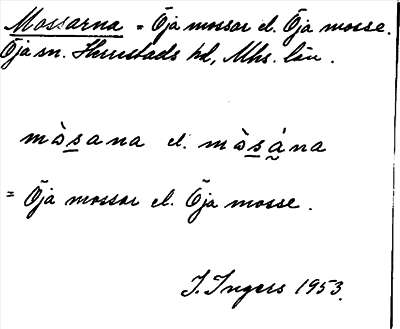 Mossarna = Öja mossar el. Öja mosse.
Öja sn. Herrestads hd, Mhs. län.
mòsana el. mòsána
= Öja mossar el. Öja mosse.
I. Ingers 1953.